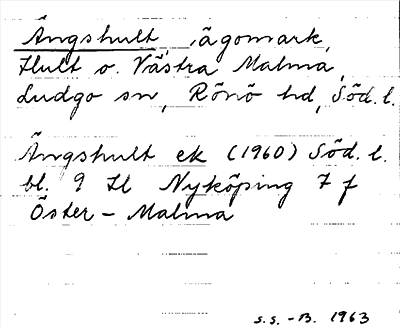 Ängshult, ägomark,
Hult o. Västra Malma,
Ludgo sn, Rönö hd, Söd. l.
Ängshult ek (1960) Söd. l.
bl. 9 H Nyköping 7 f
Öster-Malma
S.S. -B. 1963